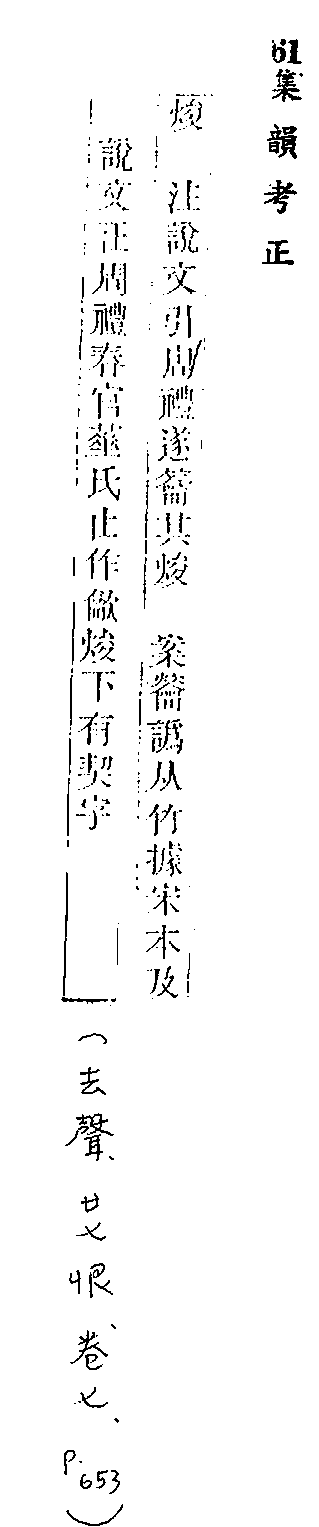 61集韻考正
焌 注說文引周禮遂籥其焌 案籥譌从竹據宋本及
說文正周禮春官菙氏止作龡焌下有契字
(去聲、廿七恨、卷七、P.653)